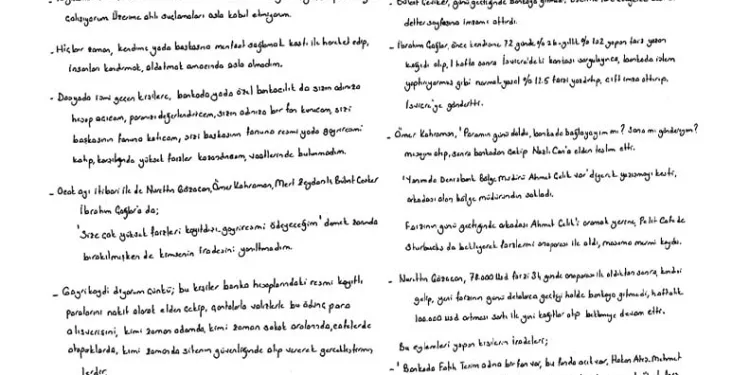 çalışıyorum üzerime atılı suçlamaları asla kabul etmiyorum.
- Hiçbir zaman, kendime yada başkasına menfaat sağlamak kastı ile hareket edip,
insanları kandırmak, aldatmak amacında asla olmadım.
- Dosyada ismi geçen kişilere, bankada yada özel bankacılık da sizin adınıza
hesap açıcam, paranızı değerlendiricem, sizin adınıza bir fon kurucam, sizi
başkasının fonuna katıcam, sizi başkasının fonuna resmi yada gayriresmi
katıp, karşılığında yüksek faizler kazandırıcam, vaatlerinde bulunmadım.
- Ocak ayı itibari ile de Nurettin Gözocan, Ömer Kahraman, Mert Zeydanlı, Bülent Çeviker
İbrahim Çağlar'a da;
'Size çok yüksek faizleri kayıtdışı, gayriresmi ödeyeceğim' demek zorunda
bırakılmışken de kimsenin iradesini yanıltmadım.
- Gayrikaydi diyorum çünkü; bu kişiler banka hesaplarındaki resmi kayıtlı
paralarını nakit olarak elden çekip, çantalarla valizlerle bu ödünç para
alışverişini, kimi zaman odamda, kimi zaman sokak aralarında, cafelerde
otoparklarda, kimi zamanda sitenin güvenliğinde alıp vererek gerçekleştirmiş
lerdir.
- Bülent Çeviker, günü geçtiğinde bankaya gitmedi,
defter sayfasına imzamı attırdı.
- İbrahim Çağlar, önce kendisine 72 günde % 26 - yıllık % 132 yapan faiz yazan
kağıdı alıp, 1 hafta sonra İsviçre'deki bankası sorgulayınca, bankada işlem
yaptırıyormuş gibi normal yasal % 12.5 faizi yazdırıp, çift imza attırıp,
İsviçre'ye gönderttir.
- Ömer Kahraman, 'Paramın günü doldu, bankada bağlayayım mı? Sana mı göndereyim?
mesajını atıp, sonra bankadan çekip Nazlı Can'a elden teslim etti.
'Yanımda Denizbank Bölge Müdürü Ahmet Çelik var' diyerek yazışmayı kesti,
arkadaşı olan bölge müdüründen sakladı.
Faizinin günü geçtiğinde arkadaşı Ahmet Çelik'i aramak yerine, Pelit Cafe de
Starbucks da bekleyerek faizlerini anaparası ile aldı, masama mermi koydu.
- Nurettin Gözocan, 78.000 usd faizi 34 günde anaparası ile aldıktan sonra, kendisi
gelip, yeni faizinin günü defalarca geçtiği halde bankaya gitmedi, haftalık
100.000 usd artması şartı ile yeni kağıtlar alıp beklemeye devam etti.
Bu eylemleri yapan kişilerin iradeleri;
- 'Bankada Fatih Terim adına bir fon var, bu fonda acil var, Hakan Ateş, Mehmet